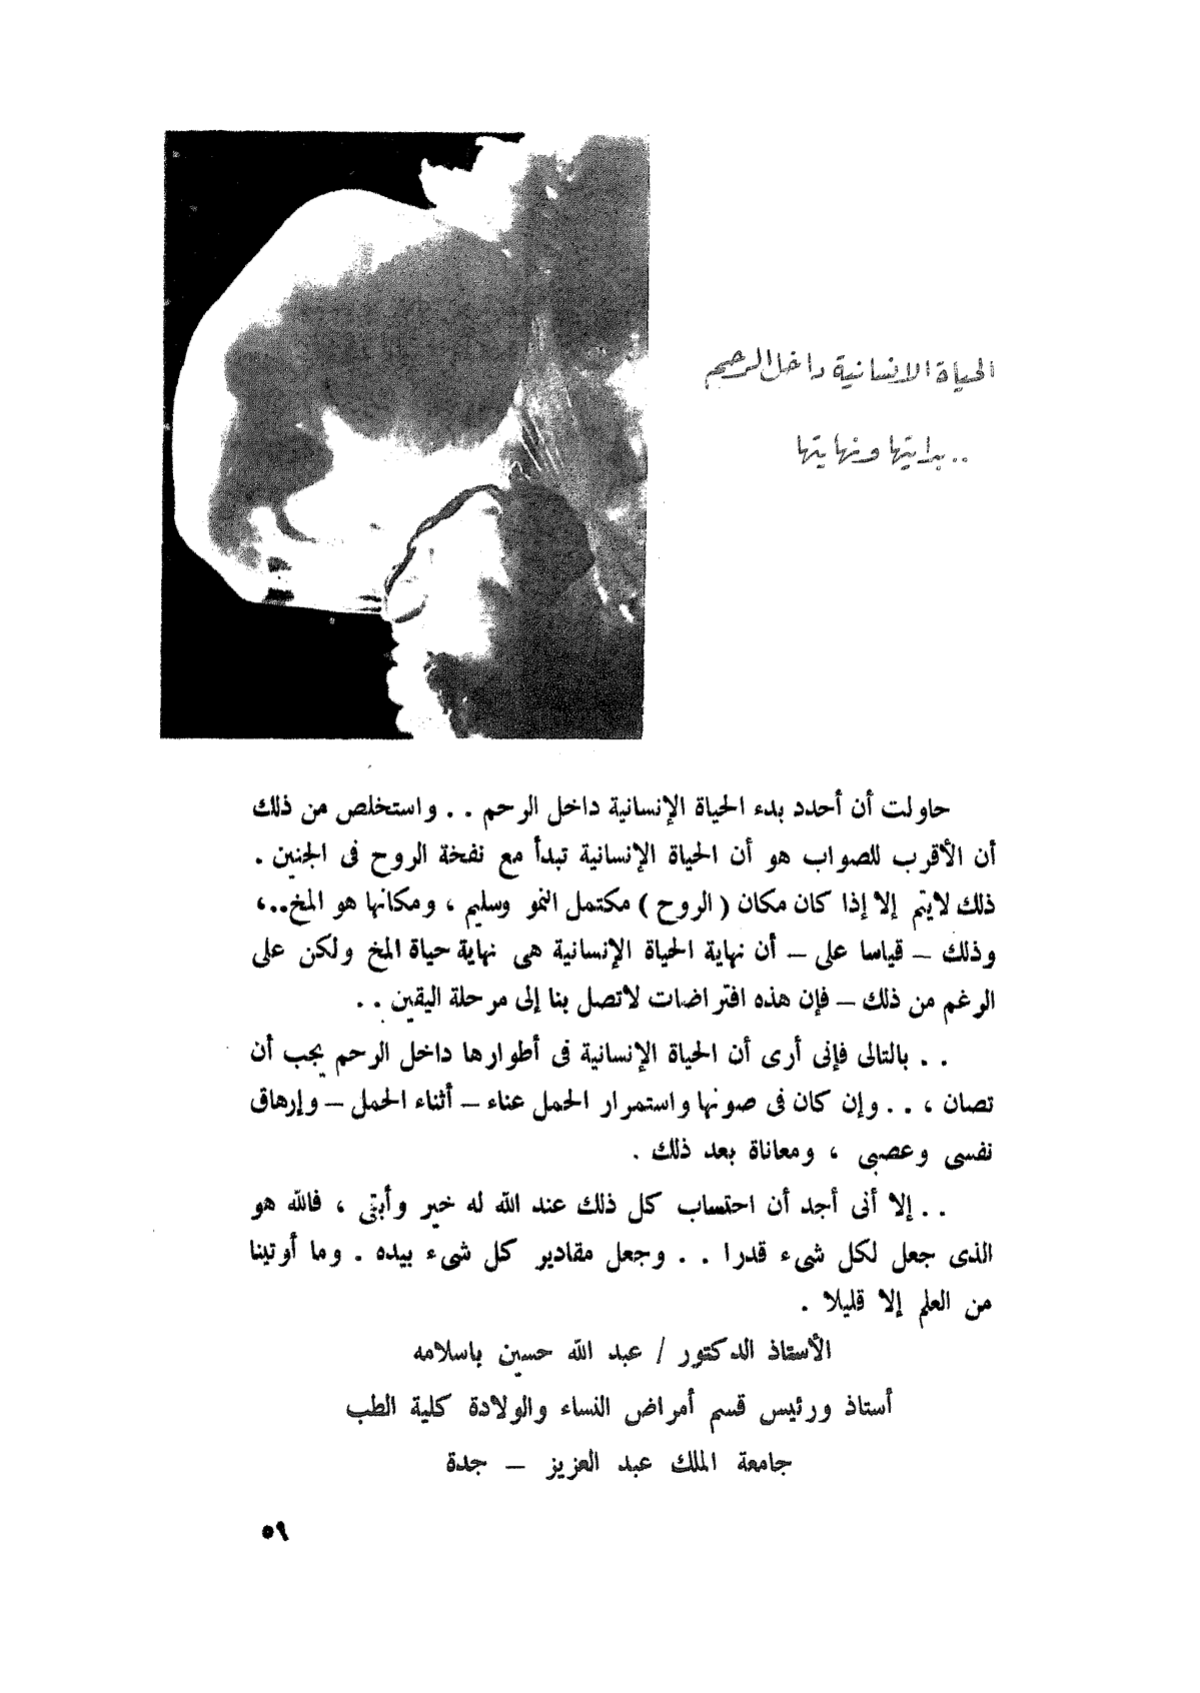 الحياة الانسانية داخل الرحم
.. بدايتها ونهايتها
حاولت أن أحدد بدء الحياة الإنسانية داخل الرحم . . واستخلص من ذلك
أن الأقرب للصواب هو أن الحياة الإنسانية تبدأ مع نفخة الروح فى الجنين .
ذلك لايتم إلا إذا كان مكان ( الروح ) مكتمل النمو وسليم ، ومكانها هو المخ..،
وذلك – قياسا على – أن نهاية الحياة الإنسانية هى نهاية حياة المخ ولكن على
الرغم من ذلك – فإن هذه افتراضات لاتصل بنا إلى مرحلة اليقين . .
. . بالتالى فإنى أرى أن الحياة الإنسانية فى أطوارها داخل الرحم يجب أن
تصان ، . . وإن كان فى صونها واستمرار الحمل عناء – أثناء الحمل – وإرهاق
نفسى وعصبى ، ومعاناة بعد ذلك .
. . إلا أنى أجد أن احتساب كل ذلك عند الله له خير وأبقى ، فالله هو
الذى جعل لكل شىء قدرا . . وجعل مقادير كل شىء بيده . وما أوتينا
من العلم إلا قليلا .
الأستاذ الدكتور / عبد الله حسين باسلامه
أستاذ ورئيس قسم أمراض النساء والولادة كلية الطب
جامعة الملك عبد العزيز – جدة
٥٩